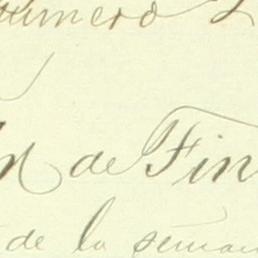 Numero
de Fin
de la seman